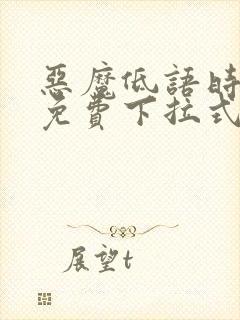 惡魔低語時
免費下拉式
展望t